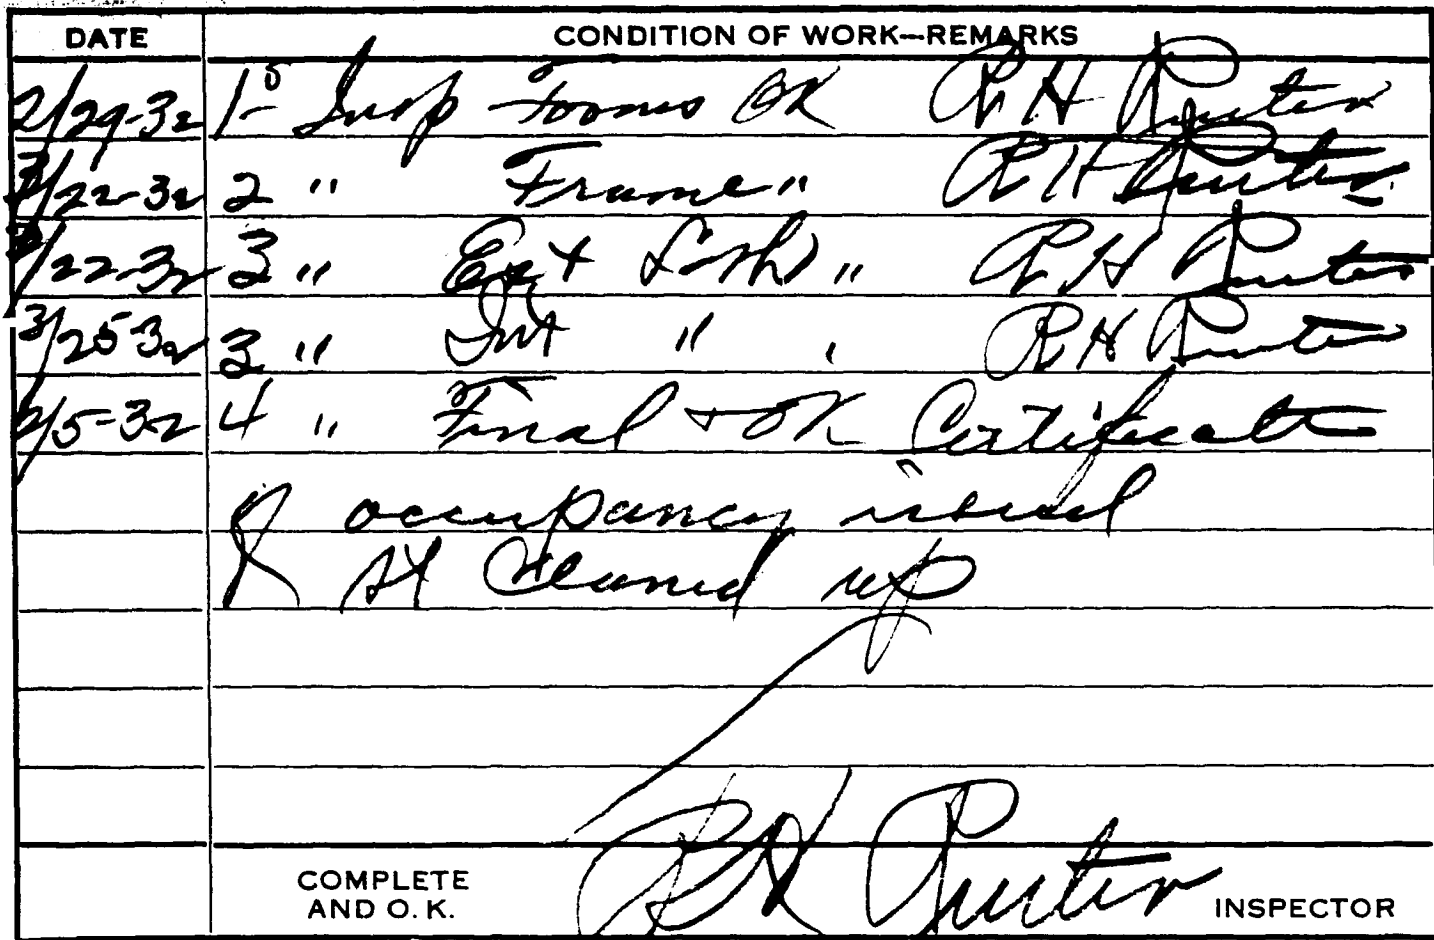 DATE CONDITION OF WORK—REMARKS
2/29-32 1s Insp Forms OK R H
3/22-32 2 " Frame " R H
/22-32 3 " Ext Lath " R H
3/25-32 3 " Int " " R H
/5-32 4 " Final + OK Certificate
of occupancy issued
St Cleaned up
COMPLETE
AND O. K. R H INSPECTOR